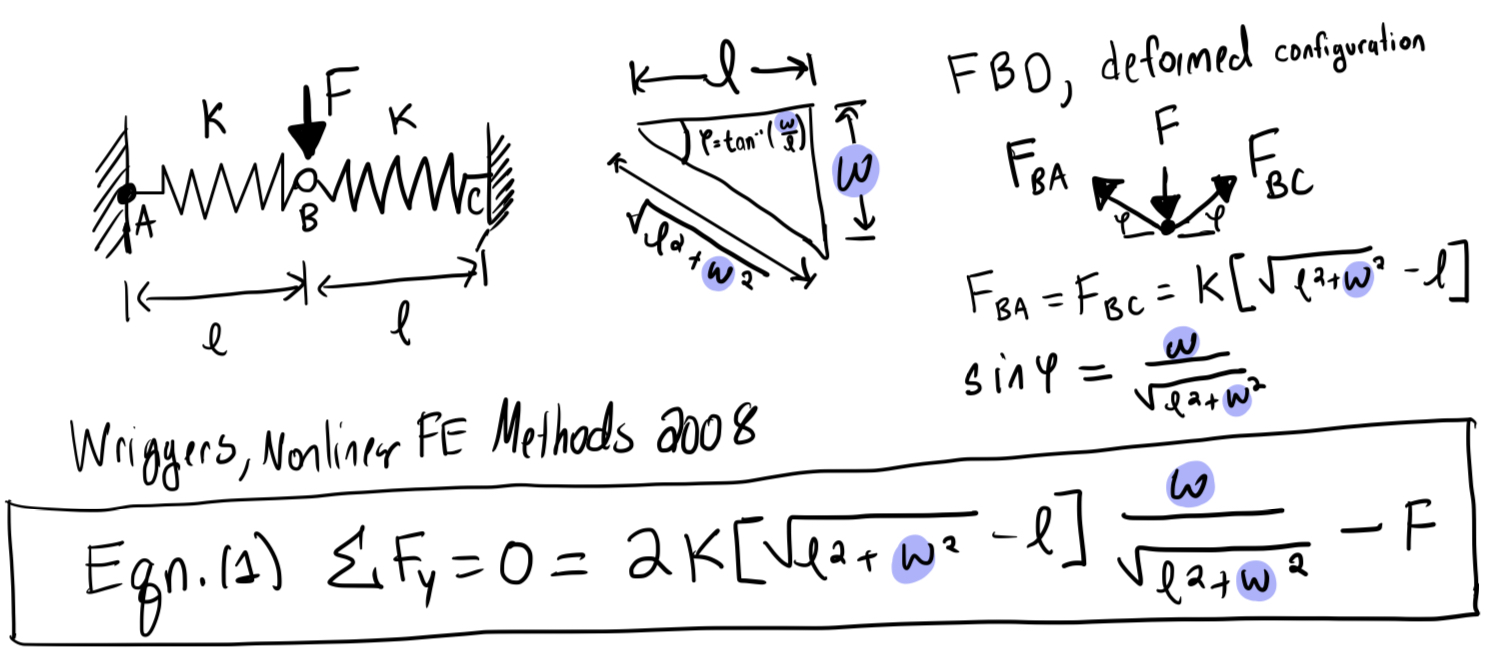 K
F
K
A
B
C
l
l
l
φ=tan⁻¹(w/l)
w
√l²+w²
FBD, deformed configuration
F_BA
F
F_BC
φ
φ
F_BA = F_BC = K[√l²+w² - l]
sin φ = w/√l²+w²
Wriggers, Nonlinear FE Methods 2008
Eqn.(1) ΣF_y = 0 = 2K[√l²+w² - l] w/√l²+w² - F